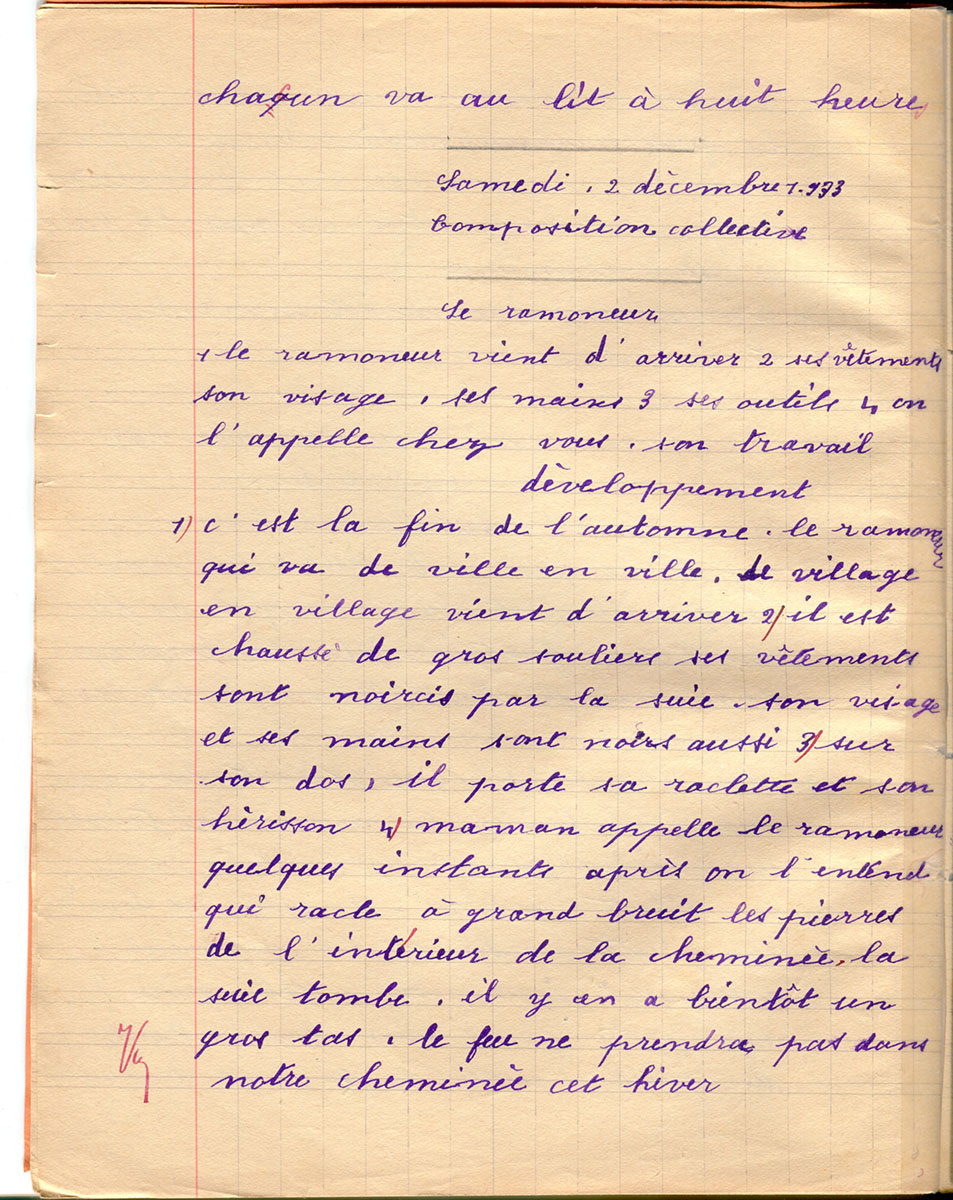 chacun va au lit à huit heures
Samedi, 2 décembre 1.933
Composition collective
Le ramoneur
1 le ramoneur vient d'arriver 2 ses vêtements
son visage, ses mains 3 ses outils 4 on
l'appelle chez vous. son travail
développement
1) c'est la fin de l'automne. le ramoneur
qui va de ville en ville, de village
en village vient d'arriver 2/ il est
chaussé de gros souliers ses vêtements
sont noircis par la suie. son visage
et ses mains sont noirs aussi 3/ sur
son dos, il porte sa raclette et son
hérisson 4/ maman appelle le ramoneur
quelques instants après on l'entend
qui racle à grand bruit les pierres
de l'intérieur de la cheminée. la
suie tombe. il y en a bientôt un
gros tas. le feu ne prendra pas dans
notre cheminée cet hiver